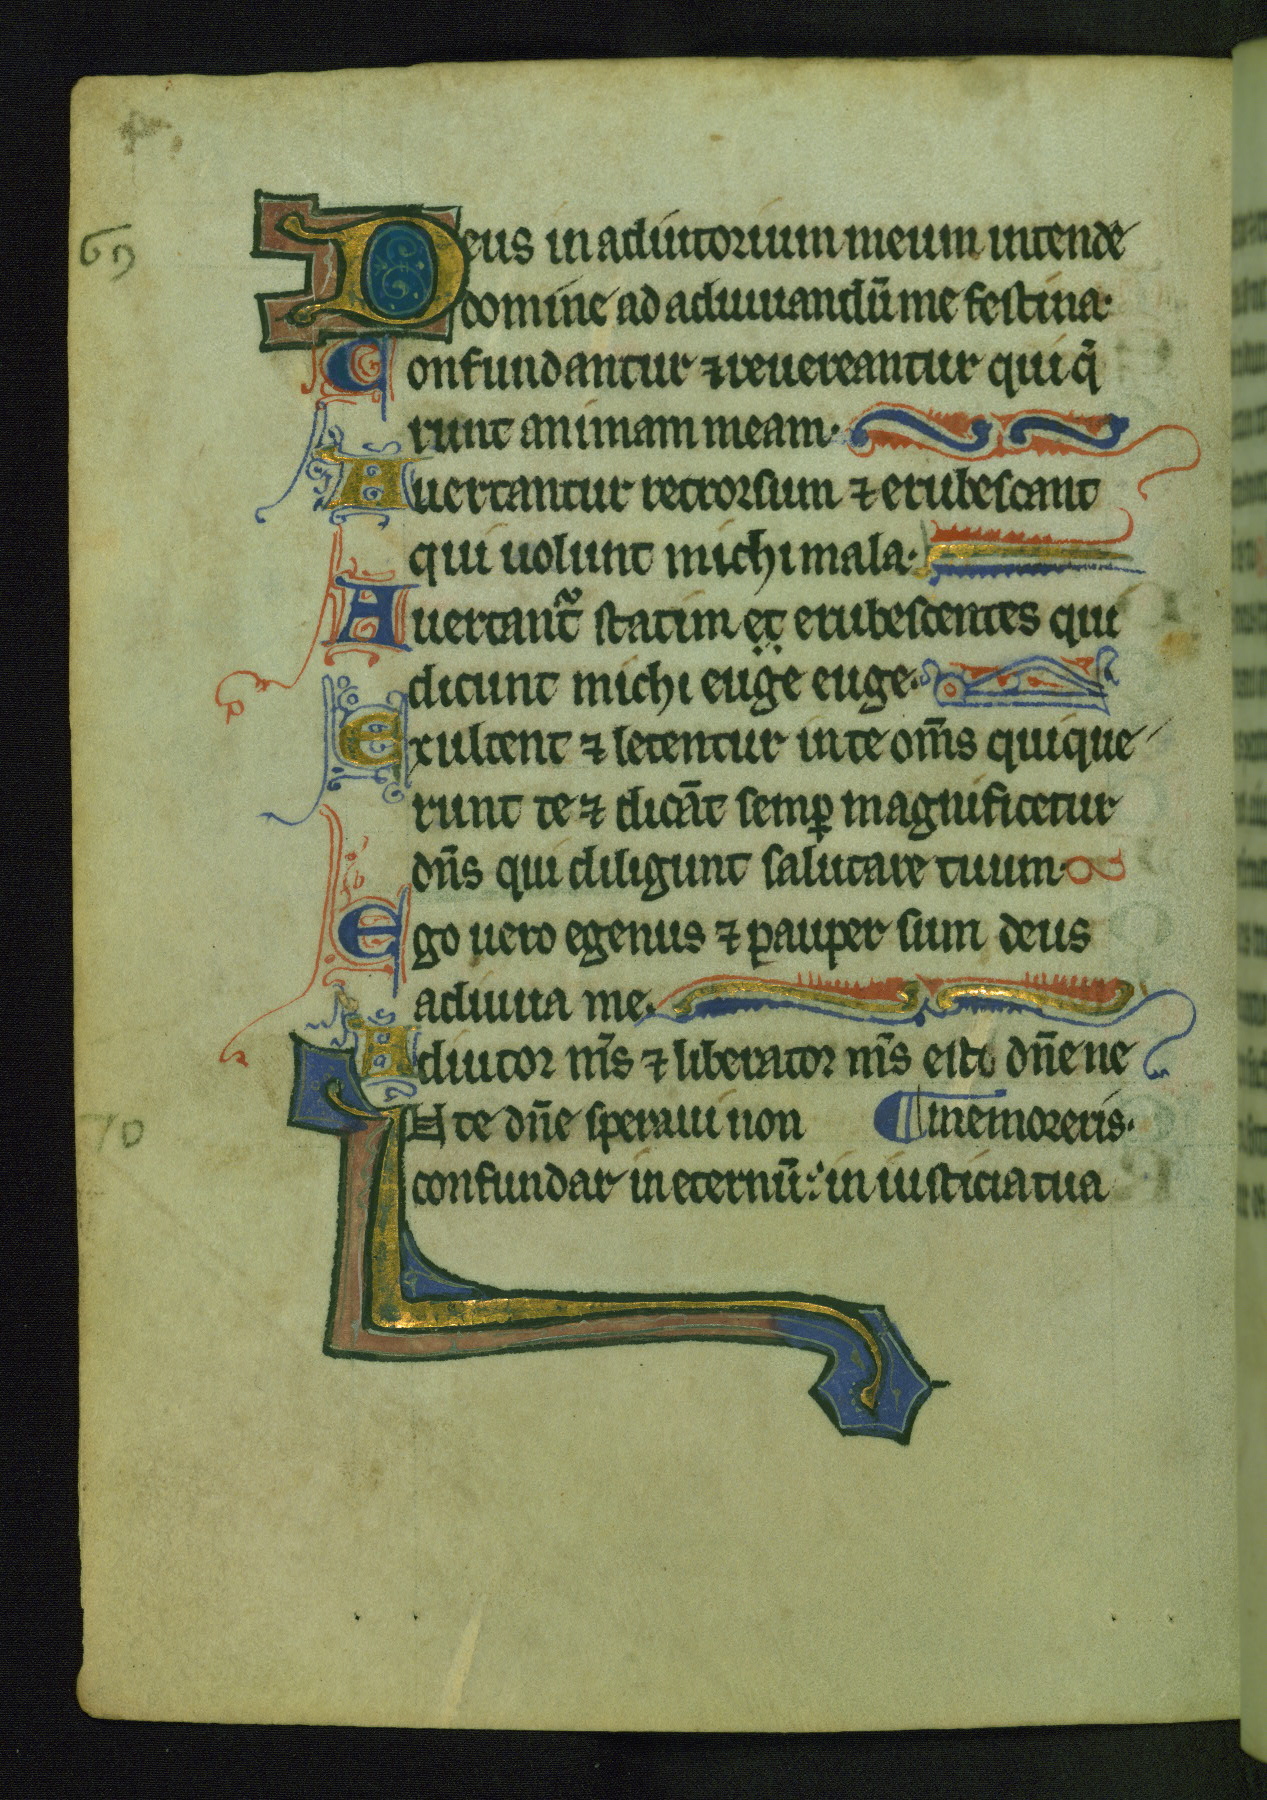 69
Deus in adiutorium meum intende
domine ad adiuuandū me festina·
Confundantur ⁊ reuereantur qui q̄
runt animam meam·
Auertantur retrorsum ⁊ erubescant
qui uolunt michi mala·
Auertant᷑ statim et erubescentes qui
dicunt michi euge euge·
Exultent ⁊ letentur in te om̄s qui que
runt te ⁊ dicāt semꝑ magnificetur
dn̄s qui diligunt salutare tuum·
Ego uero egenus ⁊ pauper sum deus
adiuua me·
Adiutor m̄s ⁊ liberator m̄s esto dn̄e ne
70
IN te dn̄e speraui non ¶ memoreris·
confundar in eternū: in iusticia tua